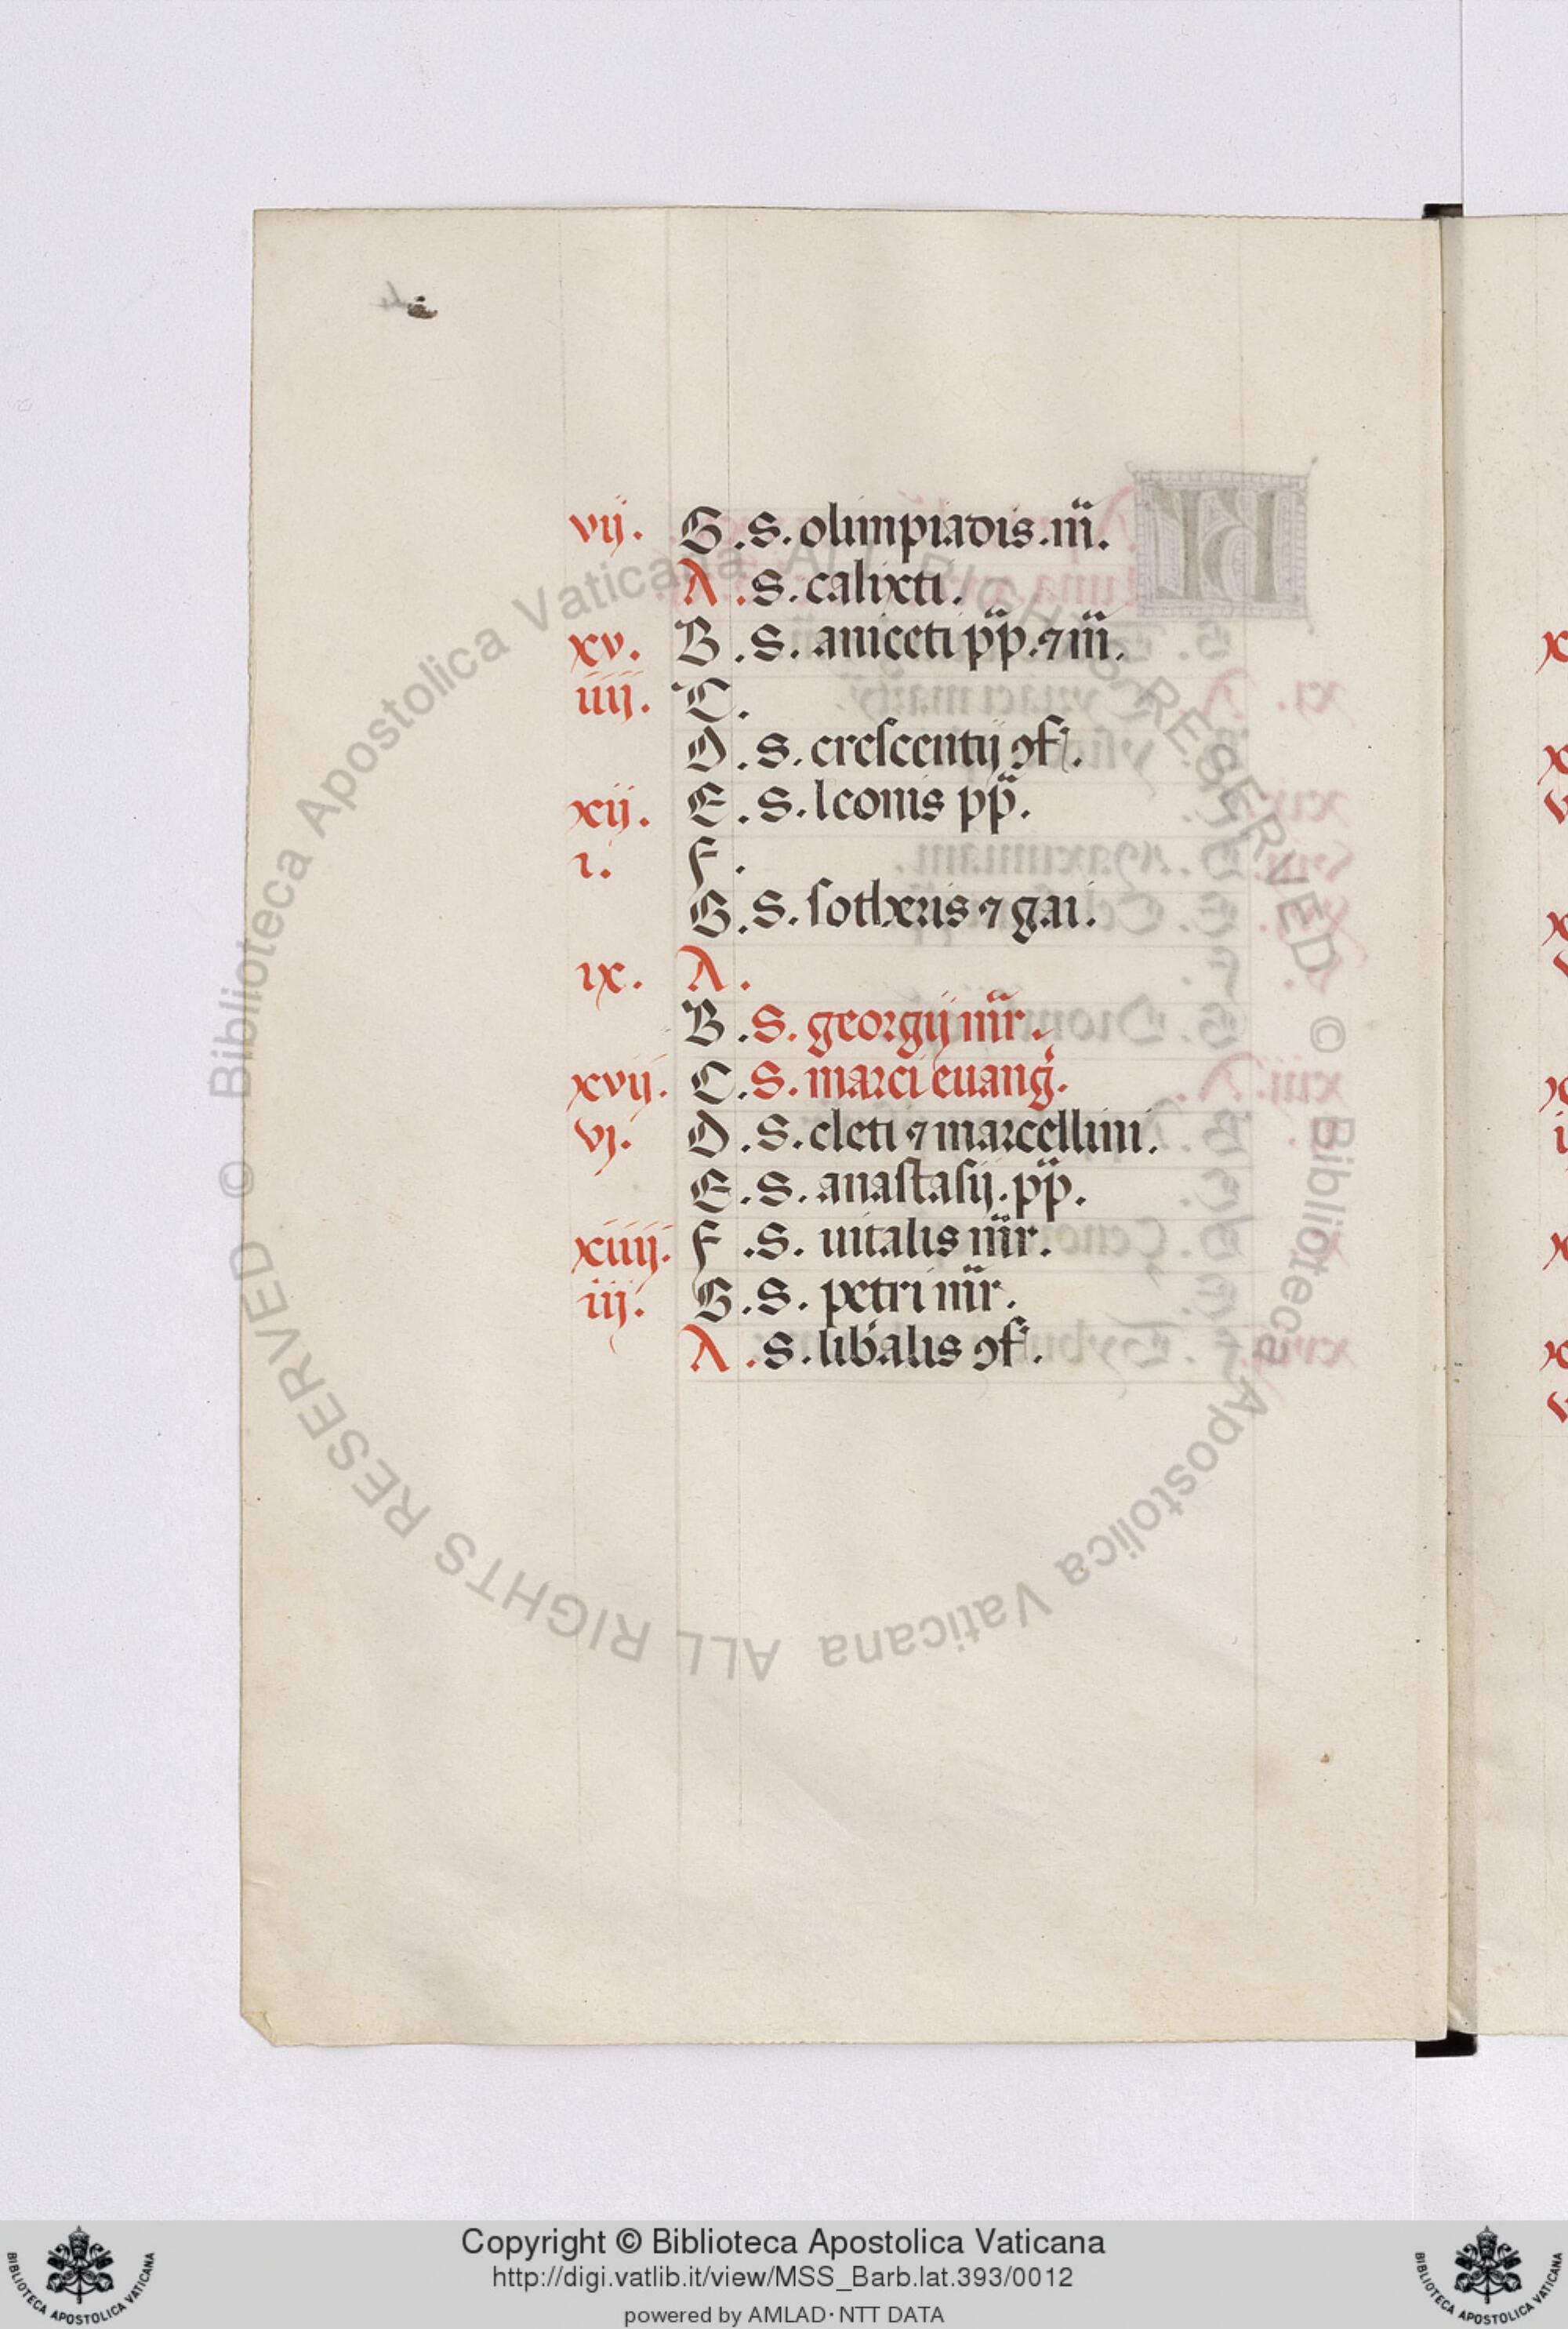 vij. G. S. olimpiadis. m̄.
A. S. calixti.
xv. B. S. aniceti pp̄. ⁊ m̄.
iiij. C.
D. S. crescentij ꝯf.
xij. E. S. leonis pp̄.
i. F.
G. S. sotheris ⁊ gai.
ix. A.
B. S. georgij mr̄.
xvij. C. S. marci euang̃.
vj. D. S. cleti ⁊ marcellini.
E. S. anastasij. pp̄.
xiiij. F. S. uitalis mr̄.
iij. G. S. petri mr̄.
A. S. lib̄alis ꝯf.
© Biblioteca Apostolica Vaticana ALL RIGHTS RESERVED © Biblioteca Apostolica Vaticana ALL RIGHTS RESERVED
Copyright © Biblioteca Apostolica Vaticana
http://digi.vatlib.it/view/MSS_Barb.lat.393/0012
powered by AMLAD·NTT DATA
BIBLIOTECA APOSTOLICA VATICANA
BIBLIOTECA APOSTOLICA VATICANA